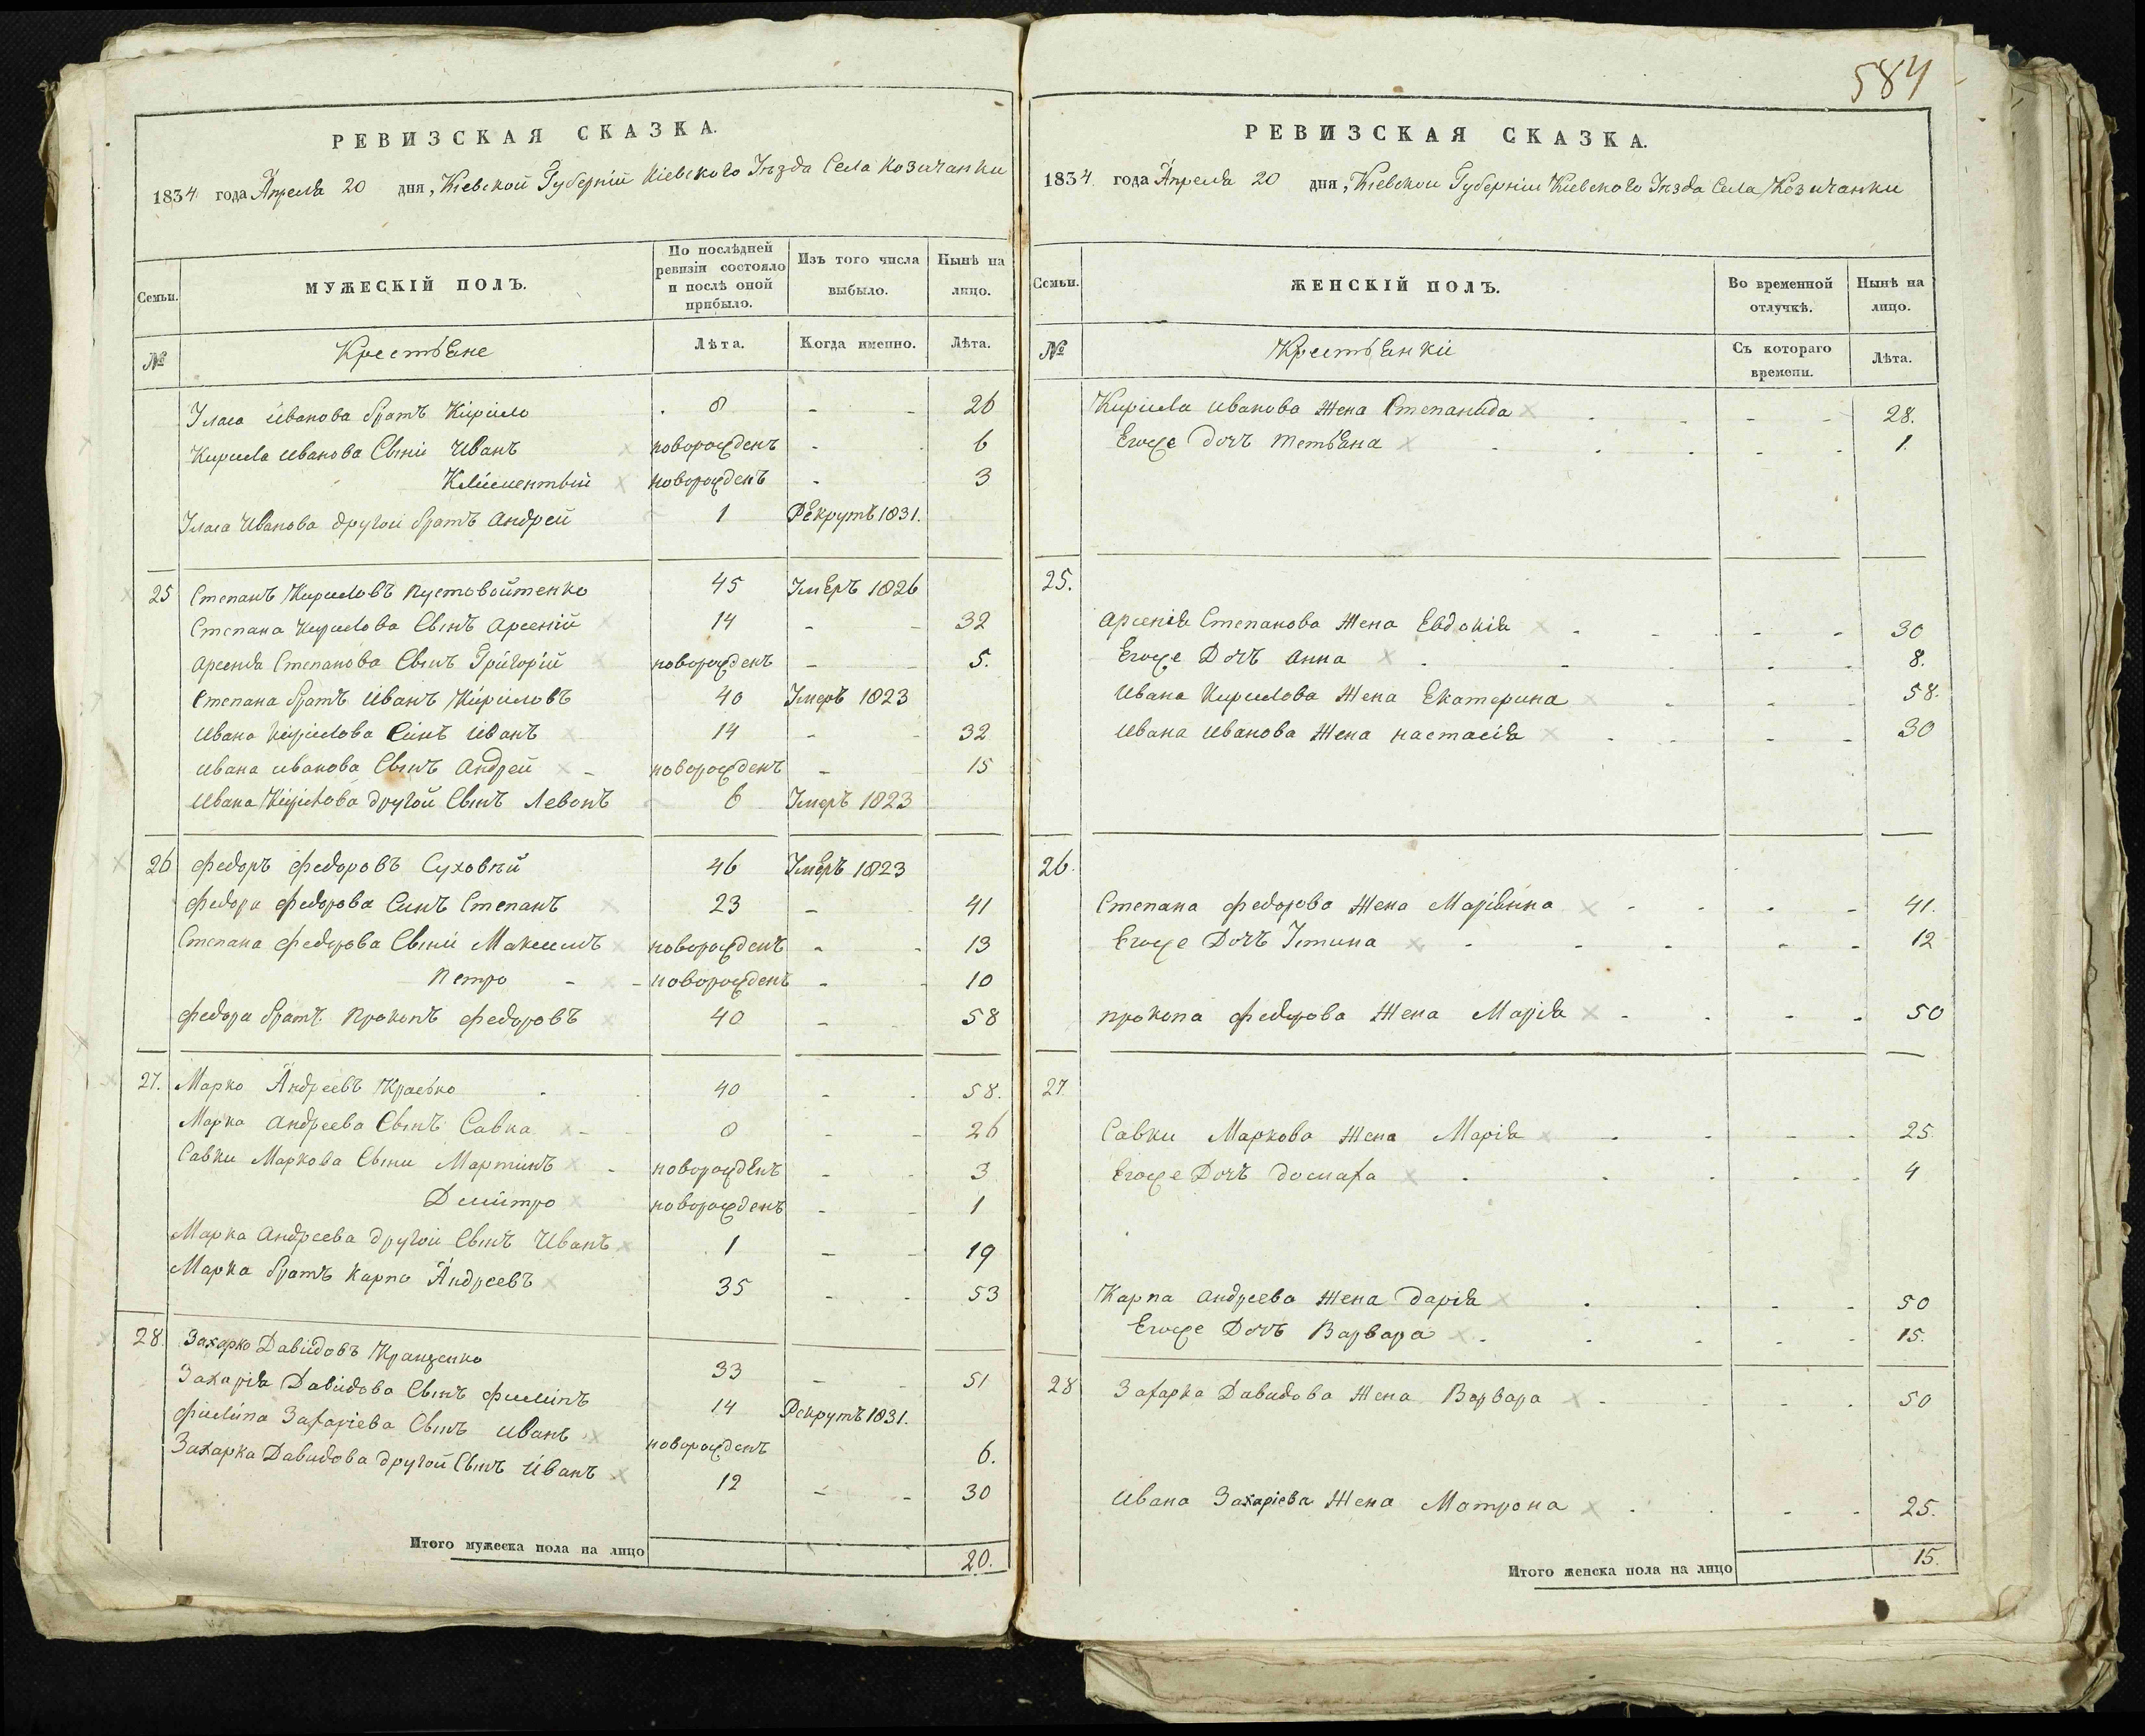 РЕВИЗСКАЯ СКАЗКА.
1834 года Апреля 20 дня, Кіевской Губерніи Кіевского Уезда Села Козичанки
Семьи.
МУЖЕСКІЙ ПОЛЪ.
По послѣдней ревизіи состояло и послѣ оной прибыло.
Изъ того числа выбыло.
Нынѣ на лицо.
№
Крестьяне
Лѣта.
Когда именно.
Лѣта.
Иванова братъ Кирило 8 - - 26
Кирила Иванова Сыны Иванъ новорожденъ - 6
Климентый новорожденъ - 3
Иванова другой братъ Андрей 1 Рекрутъ 1831.
25 Степанъ Кириловъ Пустовойтенко 45 Умеръ 1826
Степана Кирилова Сынъ Арсеній 14 - - 32
Арсенія Степанова Сынъ Григорій новорожденъ - - 5.
Степана братъ Иванъ Кириловъ 40 Умеръ 1823
Ивана Кирилова Синъ Иванъ 14 - - 32
Ивана Иванова Сынъ Андрей - новорожденъ - 15
Ивана Кирилова другой Сынъ Левонъ 6 Умеръ 1823
26 Федоръ Федоровъ Суховѣй 46 Умеръ 1823
Федора Федорова Синъ Степанъ 23 - 41
Степана Федорова Сыны Максимъ новорожденъ - - 13
Петро - - новорожденъ - - 10
Федора братъ Прокопъ Федоровъ 40 - - 58
27. Марко Андреевъ 40 - - 58.
Марка Андреева Сынъ Савка - 8 - - 26
Савки Маркова Сыны Мартинъ - новорожденъ - - 3
Дмитро новорожденъ - - 1
Марка Андреева другой Сынъ Иванъ 1 - - 19
Марка братъ Карпо Андреевъ 35 - - 53
28. Захарко Давидовъ 33 - - 51
Захарія Давидова Сынъ Филипъ 14 Рекрутъ 1831.
Филипа Захаріева Сынъ Иванъ новорожденъ 6.
Захарка Давидова другой Сынъ Иванъ 12 - - 30
Итого мужеска пола на лицо 20.
584
РЕВИЗСКАЯ СКАЗКА.
1834 года Апреля 20 дня, Кіевской Губерніи Кіевского Уезда Села Козичанки
Семьи.
ЖЕНСКІЙ ПОЛЪ.
Во временной отлучкѣ.
Нынѣ на лицо.
№
Крестьянки
Съ котораго времени.
Лѣта.
Кирила Иванова Жена Степанида - - 28.
Егоже Дочъ Тетьяна - - 1.
25.
Арсенія Степанова Жена Евдокія - - 30
Егоже Дочъ Анна - - 8.
Ивана Кирилова Жена Екатерина - - 58.
Ивана Иванова Жена Настасія - - 30
26.
Степана Федорова Жена Маріянна - - 41.
Егоже Дочъ Устина - - 12
Прокопа Федорова Жена Марія - - 50
27
Савки Маркова Жена Марія - - 25.
Егоже Дочъ Домаха - - 4
Карпа Андреева Жена Дарія - - 50
Егоже Дочъ Варвара - - 15.
28 Захарка Давидова Жена Варвара - - 50
Ивана Захаріева Жена Матрона - - 25.
Итого женска пола на лицо 15.